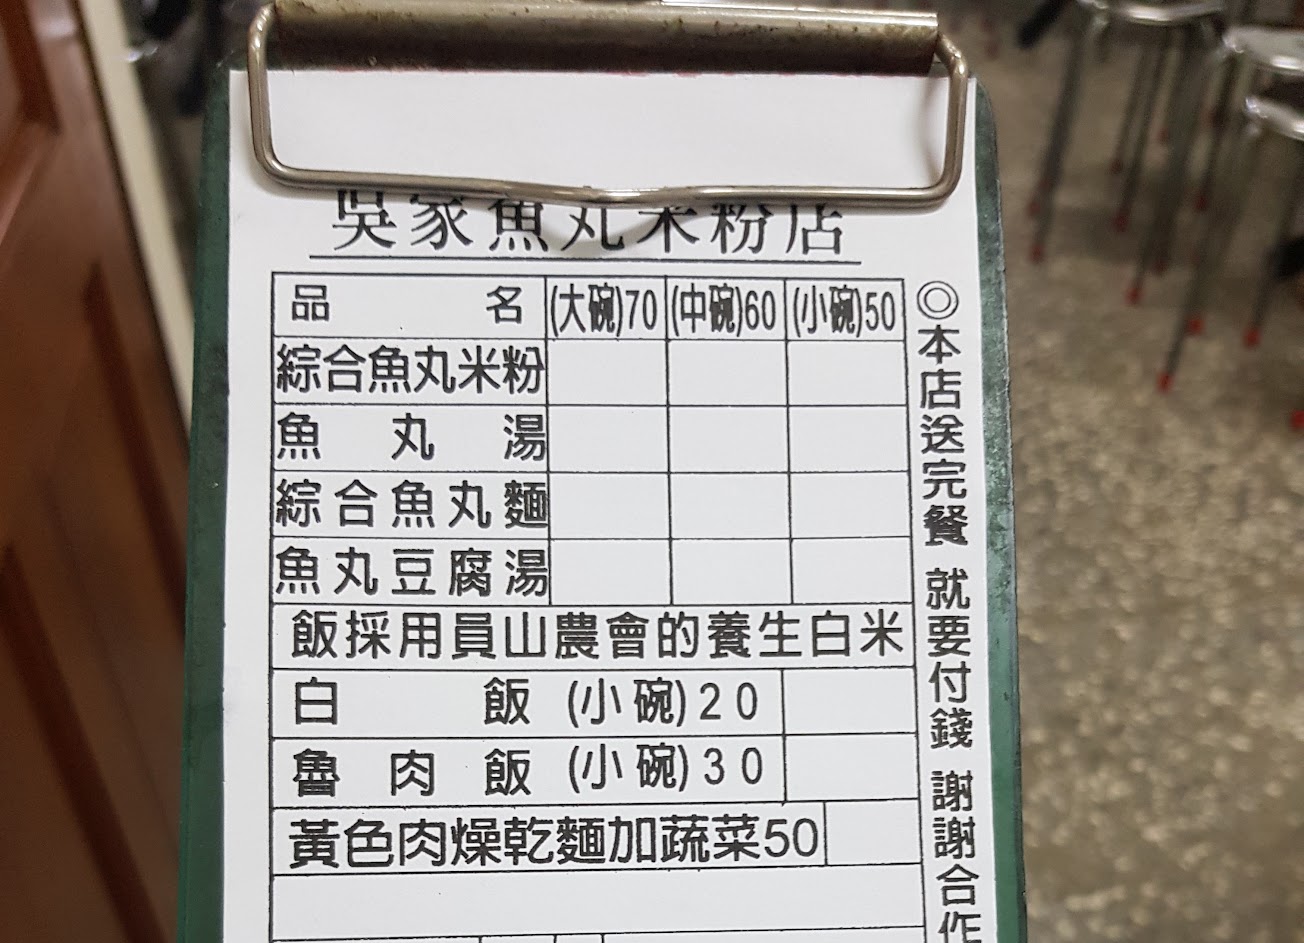 吳家魚丸米粉店
品名 (大碗)70 (中碗)60 (小碗)50
綜合魚丸米粉
魚丸湯
綜合魚丸麵
魚丸豆腐湯
飯採用員山農會的養生白米
白飯 (小碗)20
魯肉飯 (小碗)30
黃色肉燥乾麵加蔬菜50
◎本店送完餐 就要付錢 謝謝合作